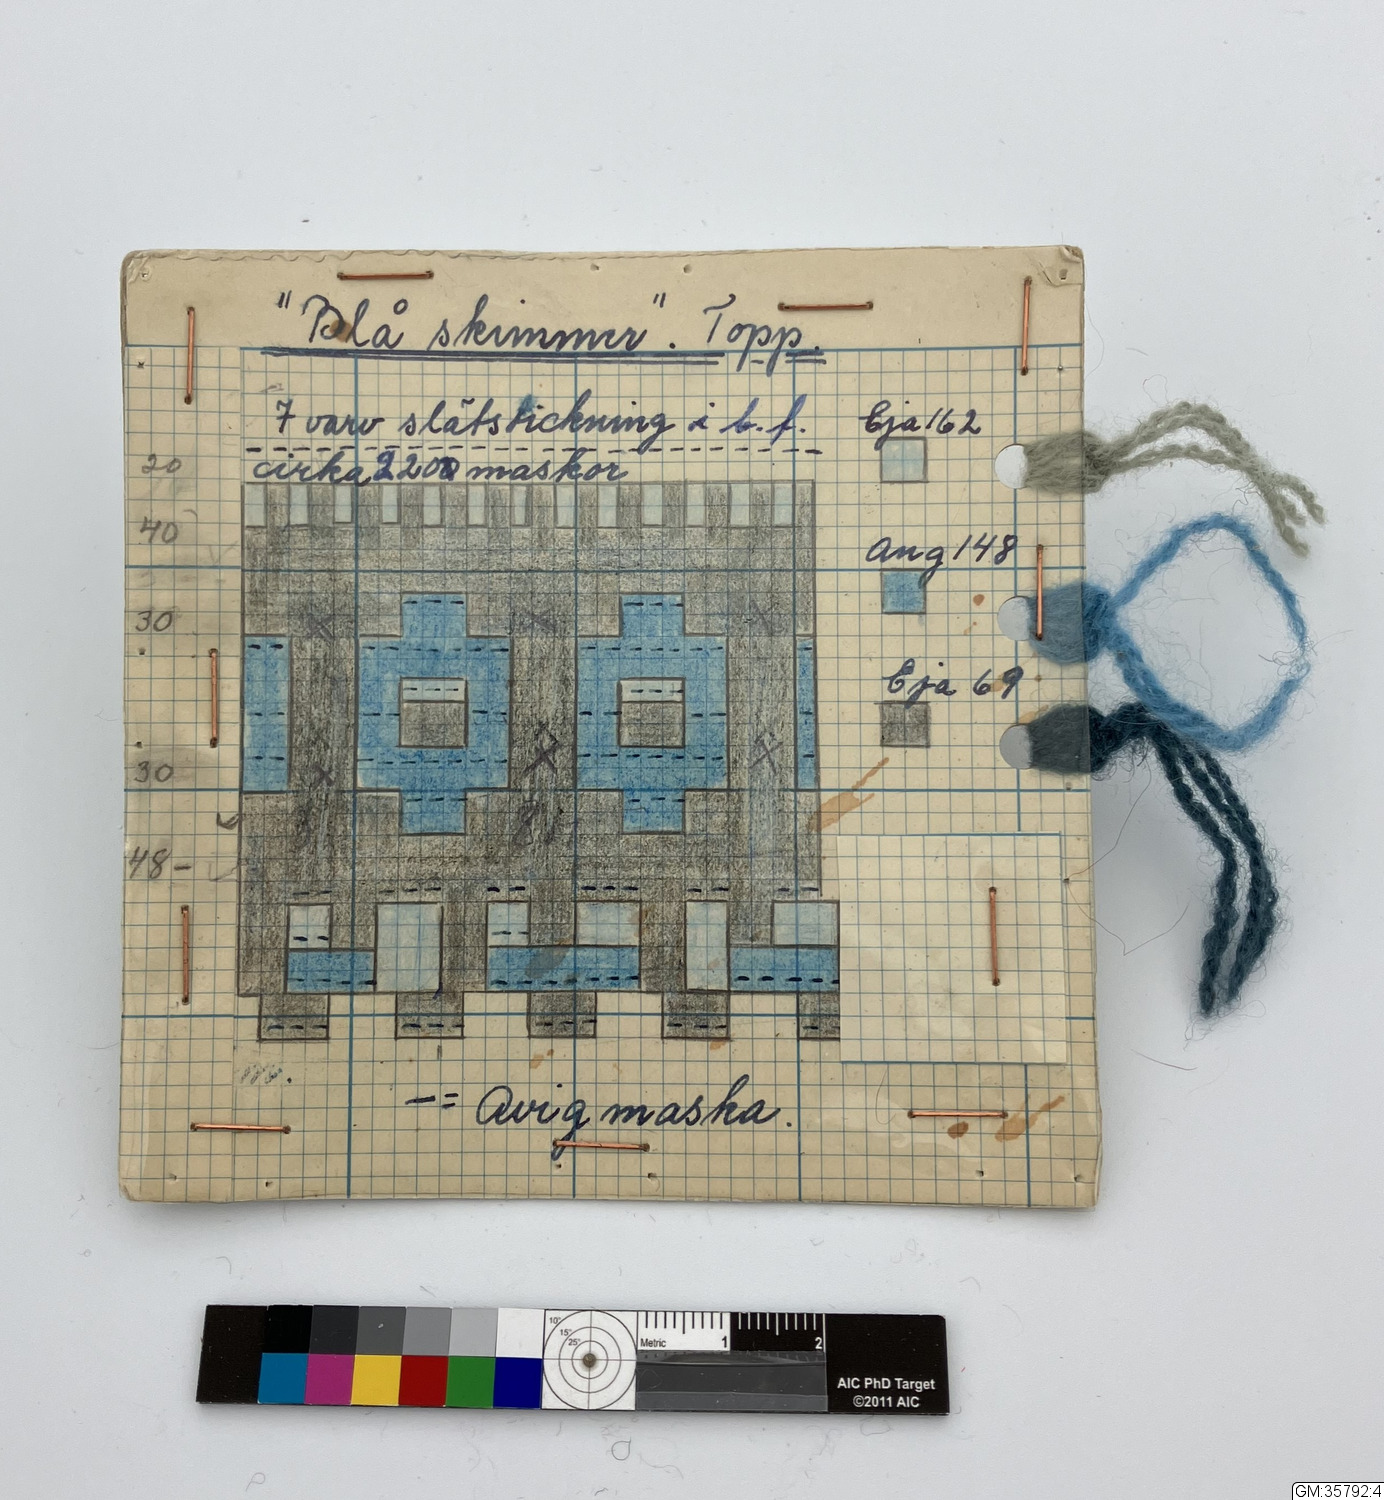 "Blå skimmer". Topp.
7 varv slätstickning i b.f.
cirka 2200 maskor
20
40
30
30
48-
Eja 162
Ang 148
Eja 69
-= Avig maska.
10°
15°
25°
Metric 1 2
AIC PhD Target
©2011 AIC
GM:35792:4